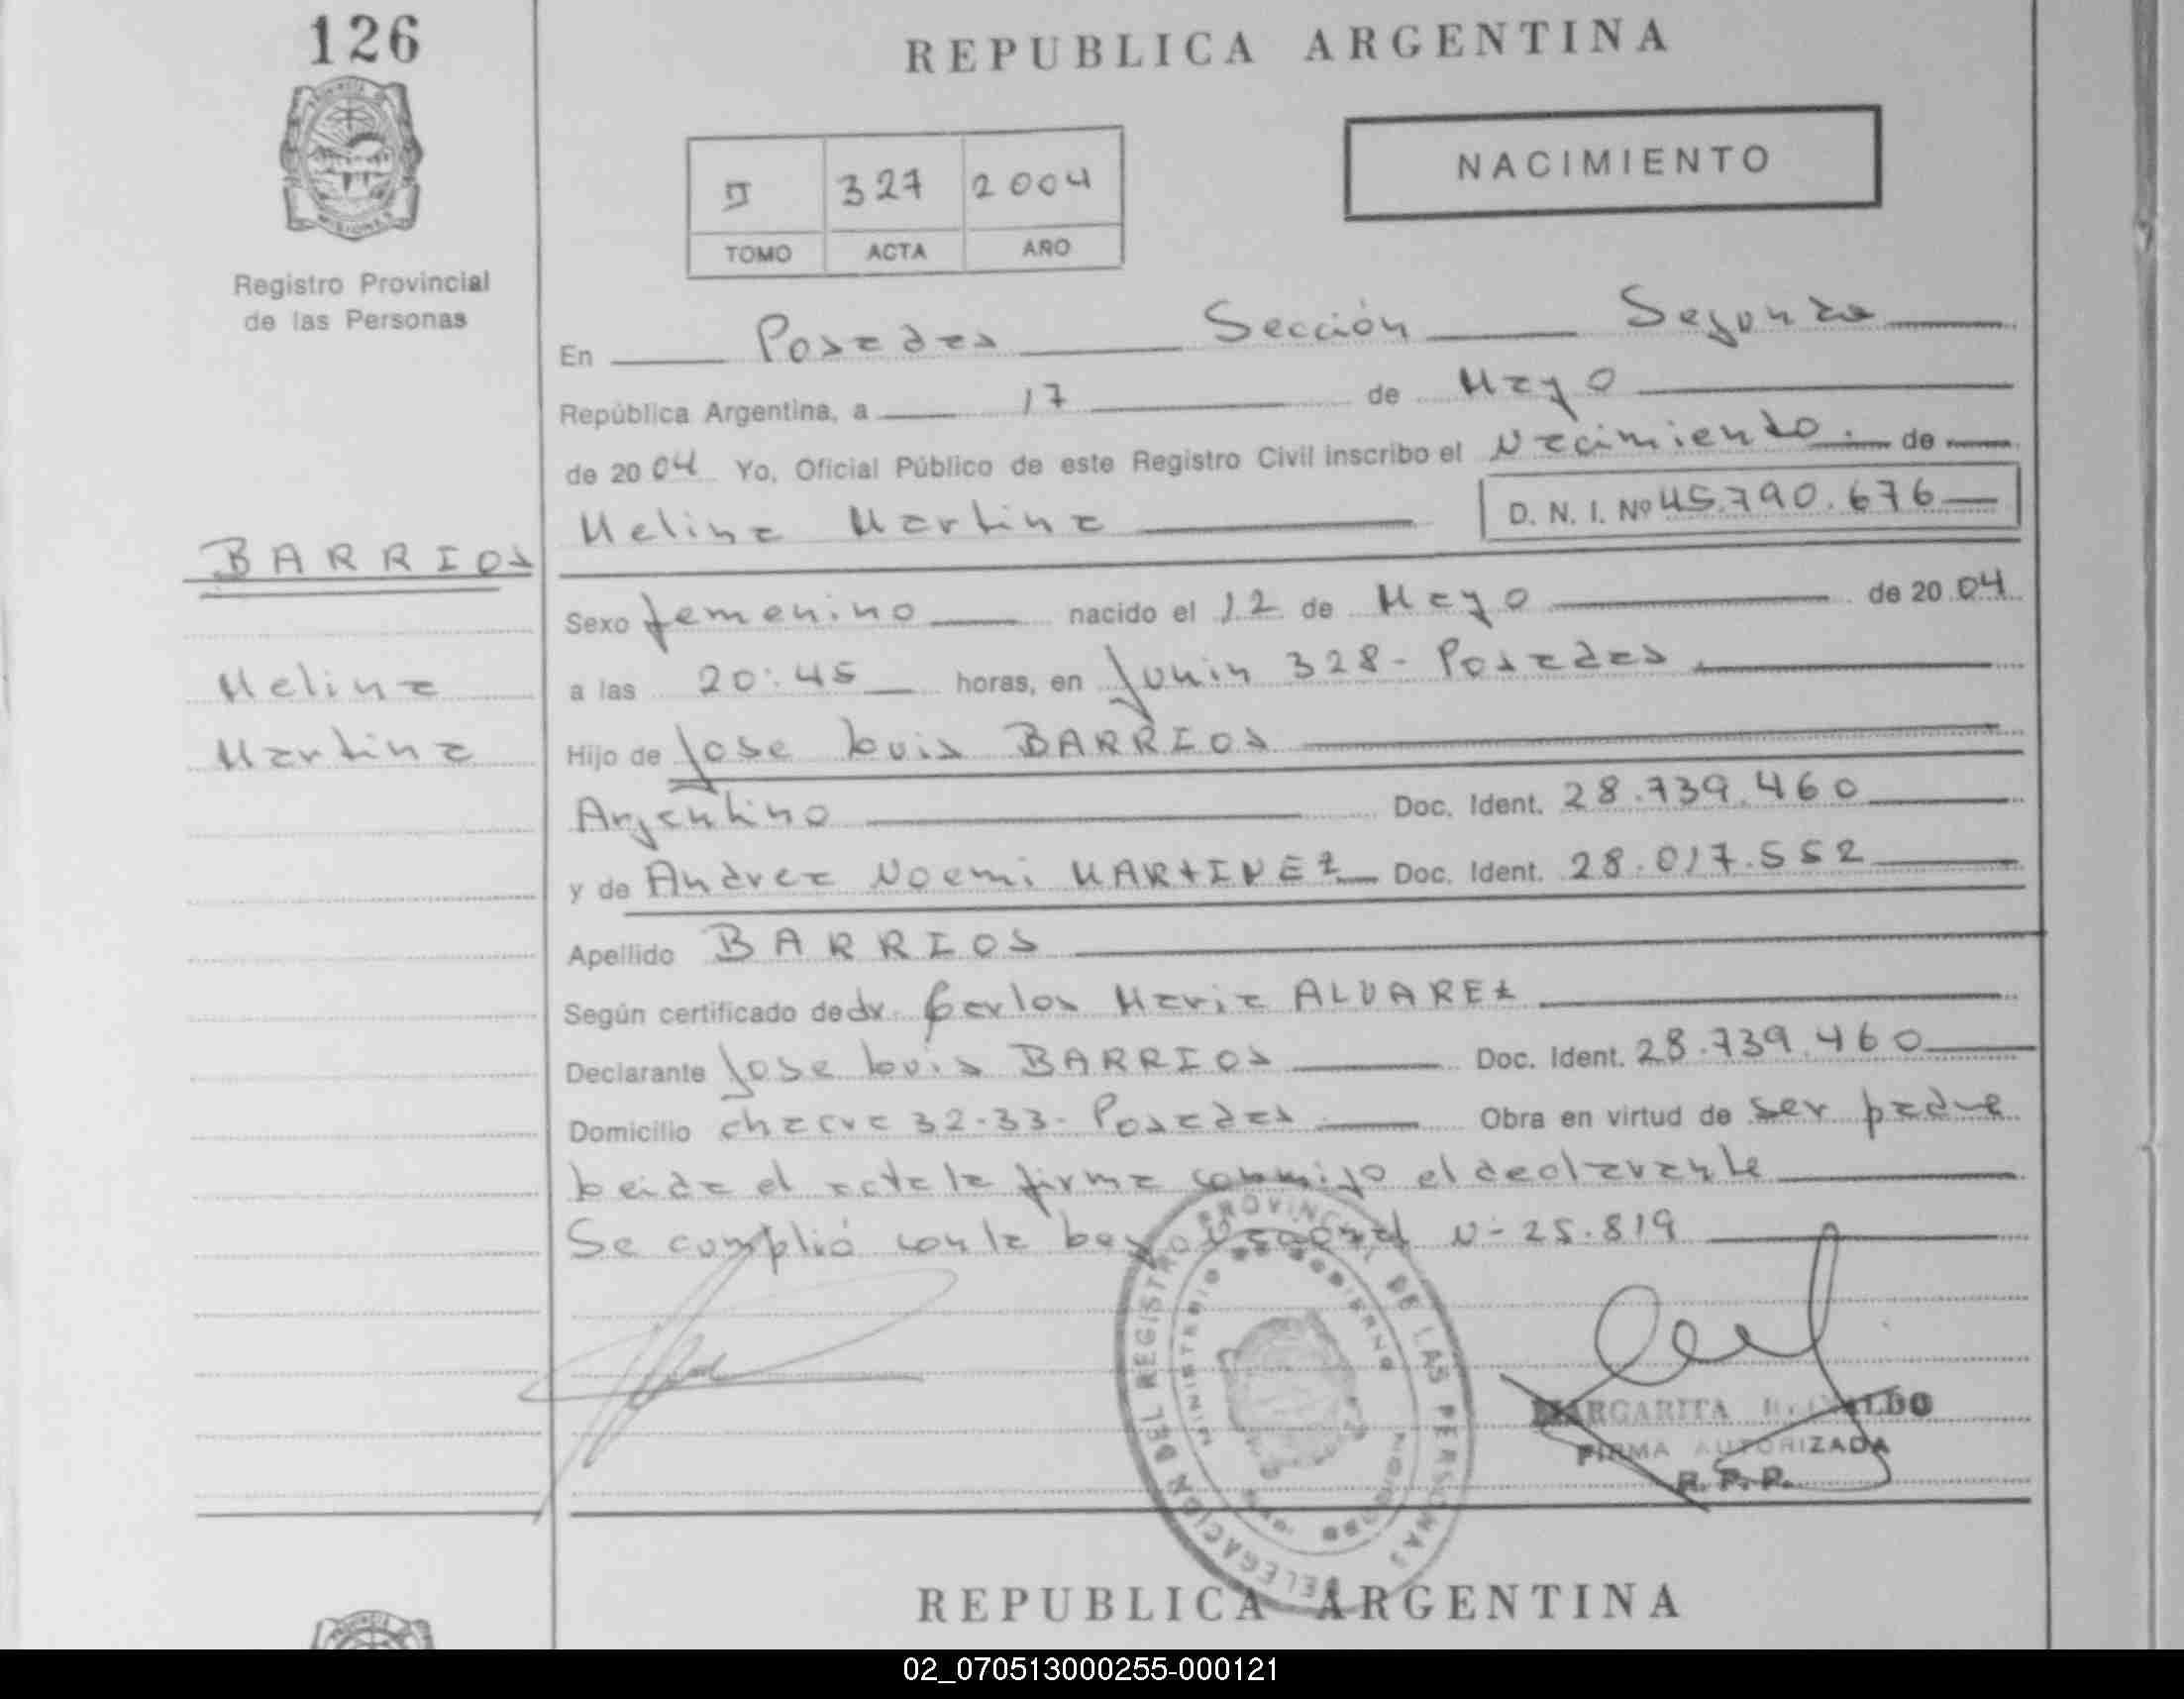 126
REPUBLICA ARGENTINA
NACIMIENTO
II 327 2004
TOMO ACTA AÑO
Registro Provincial
de las Personas
En Posadas Sección Segunda
República Argentina, a 17 de Mayo
de 2004 Yo, Oficial Público de este Registro Civil inscribo el Nacimiento. de
Melina Martina D. N. I. Nº 45.790.676
BARRIOS
Melina
Martina
Sexo femenino nacido el 12 de Mayo de 2004
a las 20:45 horas, en Junin 328- Posadas
Hijo de Jose Luis BARRIOS
Argentino Doc. Ident. 28.739.460
y de Andrea Noemi MARTINEZ Doc. Ident. 28.017.552
Apellido BARRIOS
Según certificado de dr. Carlos Maria ALVAREZ
Declarante Jose Luis BARRIOS Doc. Ident. 28.739.460
Domicilio chacra 32-33- Posadas Obra en virtud de ser padre
Leida el acta la firma conmigo el declarante
Se cumplió con la Ley Nacional N- 25.819
DELEGACION DEL REGISTRO PROVINCIAL DE LAS PERSONAS
MINISTERIO DE GOBIERNO
MARGARITA
FIRMA AUTORIZADA
R. P. P.
REPUBLICA ARGENTINA
02_070513000255-000121